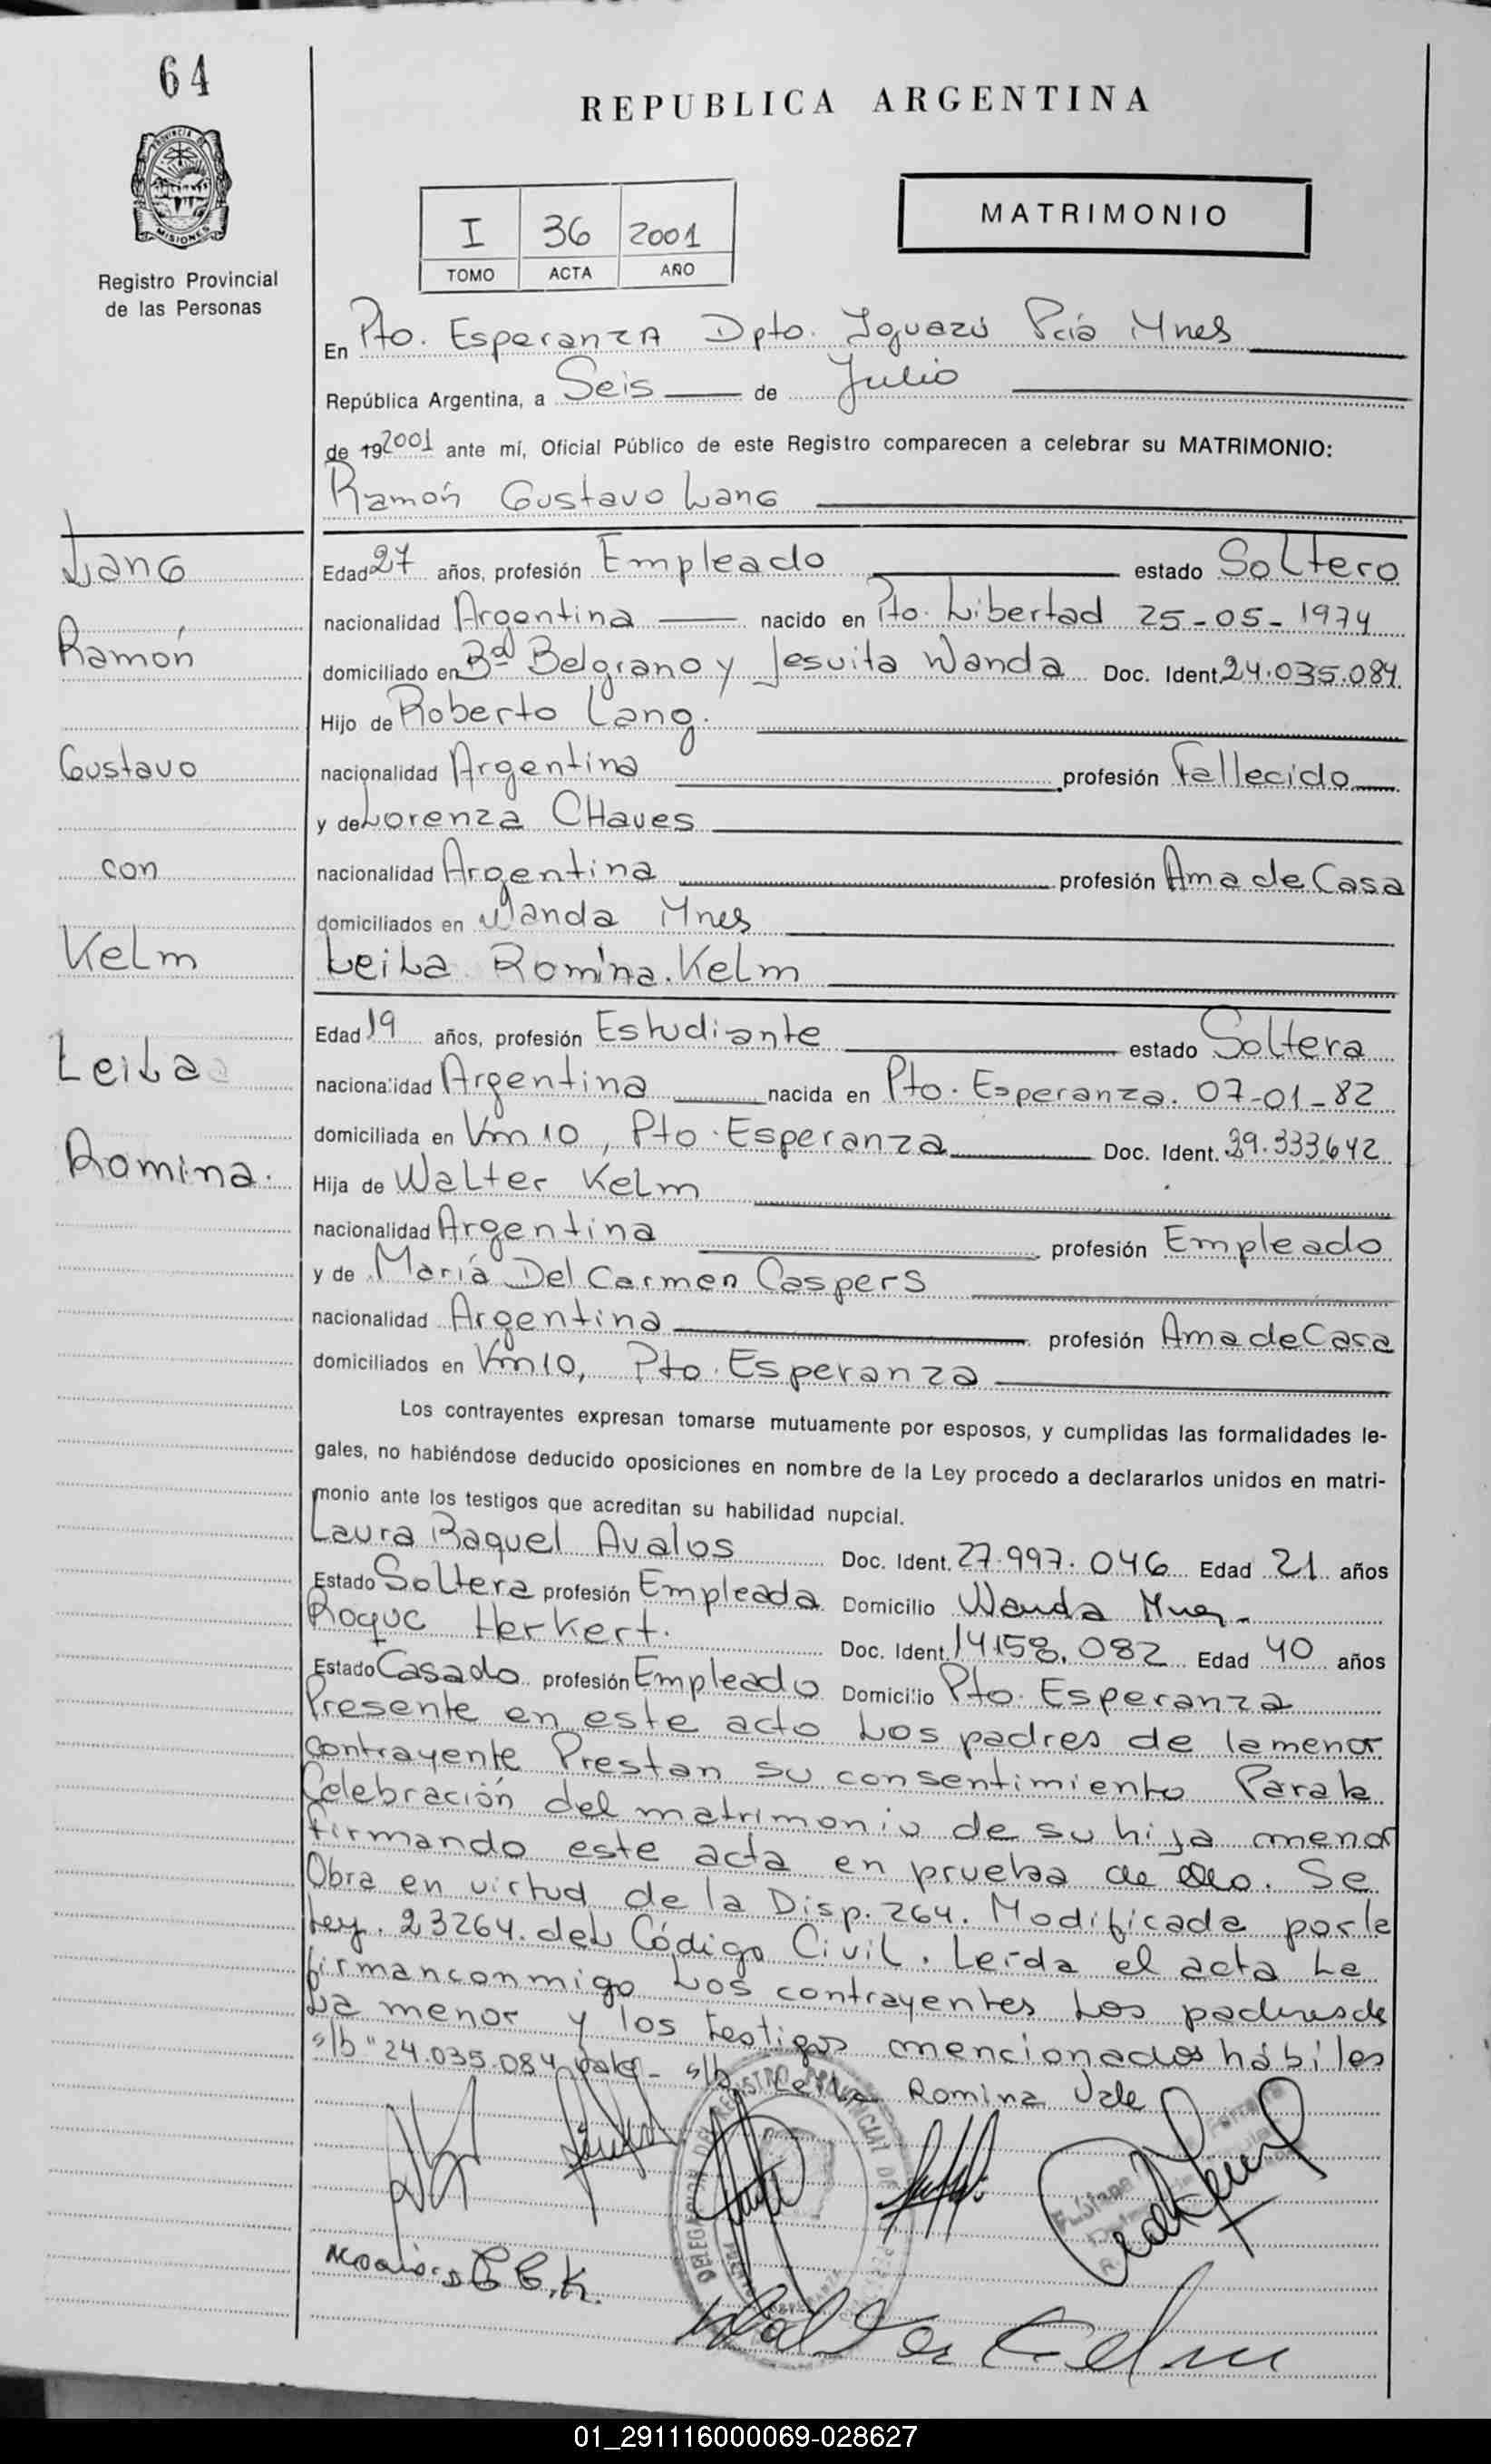 64
REPUBLICA ARGENTINA
PROVINCIA DE
MISIONES
MATRIMONIO
I 36 2001
TOMO ACTA AÑO
Registro Provincial
de las Personas
En Pto. Esperanza Dpto. Iguazú Pcia Mnes
República Argentina, a Seis de Julio
de 192001 ante mí, Oficial Público de este Registro comparecen a celebrar su MATRIMONIO:
Ramón Gustavo Lang
Lang
Edad 27 años, profesión Empleado estado Soltero
nacionalidad Argentina nacido en Pto. Libertad 25-05-1974
Ramón
domiciliado en Bº Belgrano y Jesuita Wanda Doc. Ident. 24.035.084
Hijo de Roberto Lang.
Gustavo
nacionalidad Argentina profesión Fallecido
y de Lorenza CHaves
con
nacionalidad Argentina profesión Ama de Casa
domiciliados en Wanda Mnes
Kelm
Leila Romina. Kelm
Edad 19 años, profesión Estudiante estado Soltera
Leila
nacionalidad Argentina nacida en Pto. Esperanza. 07-01-82
domiciliada en Km 10, Pto. Esperanza Doc. Ident. 29.333642
Romina.
Hija de Walter Kelm
nacionalidad Argentina profesión Empleado
y de María Del Carmen Caspers
nacionalidad Argentina profesión Ama de Casa
domiciliados en Km 10, Pto. Esperanza
Los contrayentes expresan tomarse mutuamente por esposos, y cumplidas las formalidades le-
gales, no habiéndose deducido oposiciones en nombre de la Ley procedo a declararlos unidos en matri-
monio ante los testigos que acreditan su habilidad nupcial.
Laura Raquel Avalos Doc. Ident. 27.997.046 Edad 21 años
Estado Soltera profesión Empleada Domicilio Wanda Mnes.
Roque Herkert. Doc. Ident. 14.158.082 Edad 40 años
Estado Casado profesión Empleado Domicilio Pto. Esperanza
Presente en este acto Los padres de la menor
contrayente Prestan su consentimiento Para la
Celebración del matrimonio de su hija menor
firmando este acta en prueba de ello. Se
Obra en virtud de la Disp. 264. Modificada por la
Ley. 23264. del Código Civil. Leída el acta La
firman conmigo Los contrayentes Los padres de
La menor y los testigos mencionados hábiles
s/b "24.035.084 vale - s/b Leila Romina Vale
DELEGACION DEL REGISTRO PROVINCIAL DE
Walter Kelm
01_291116000069-028627